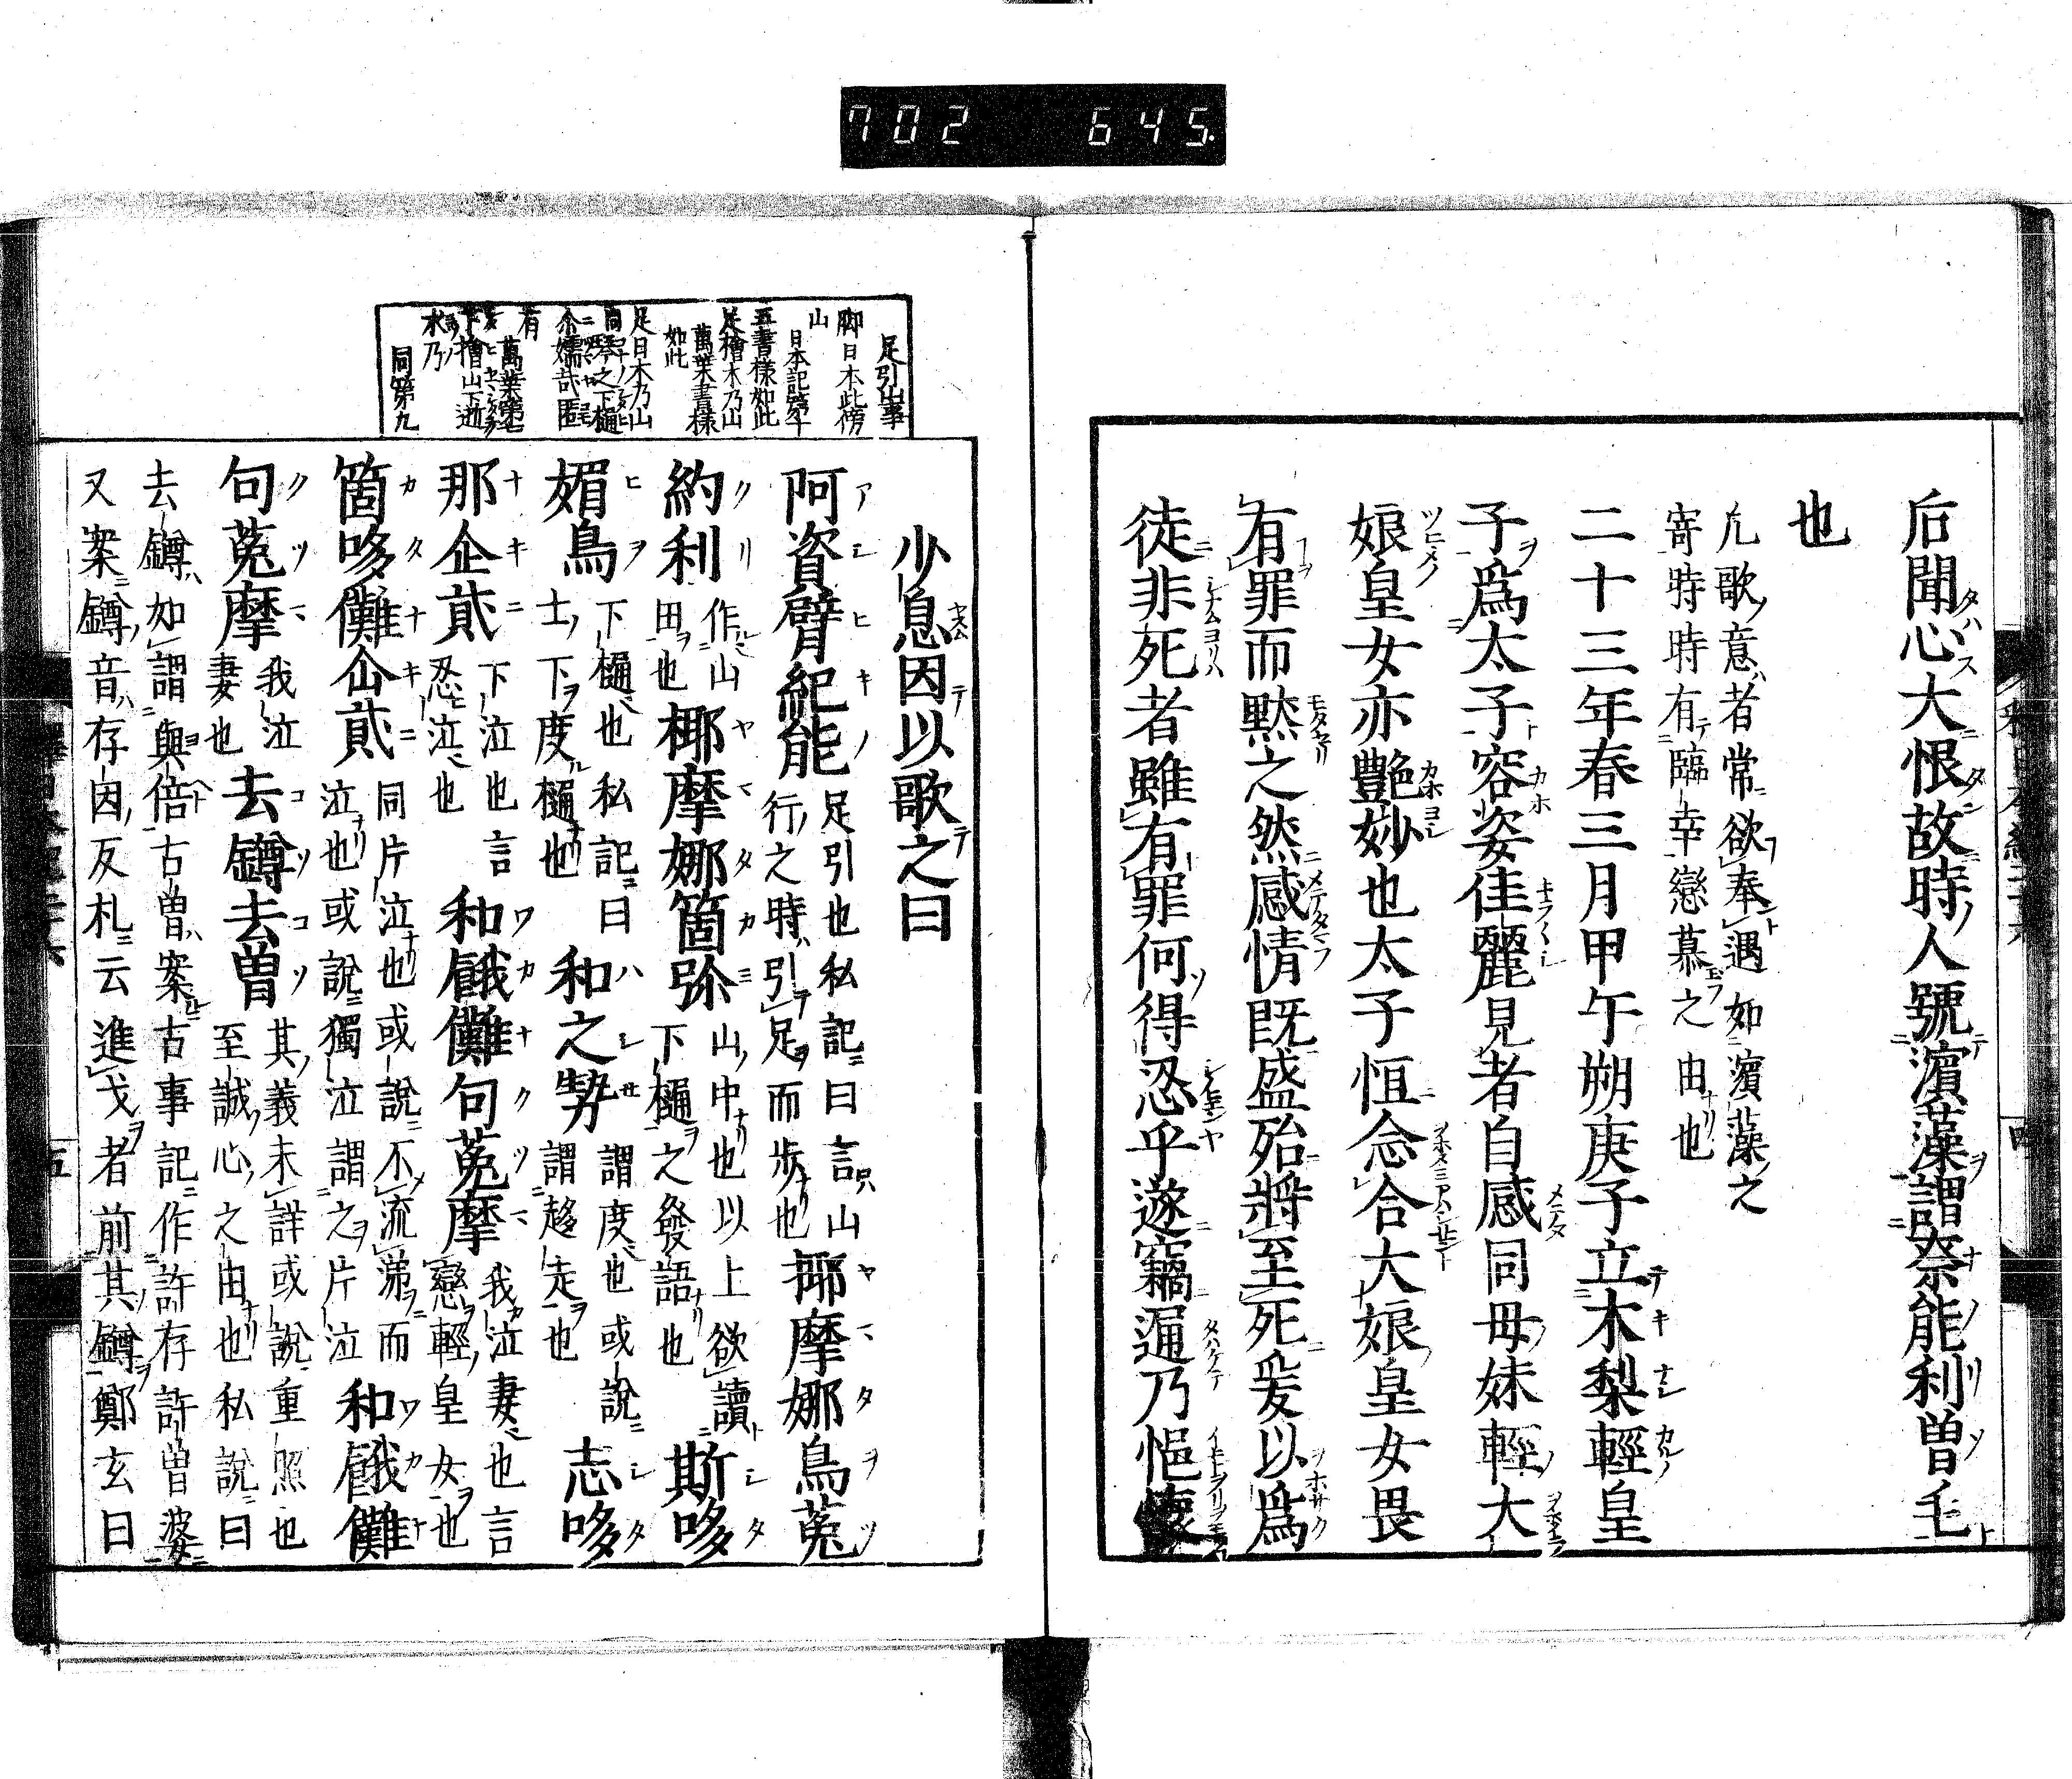 702 645.
后聞心大恨故時人號濱藻謂奈能利曽毛
也
凢歌意者常欲奉遇如濱藻之
寄時時有臨幸戀慕之由也
二十三年春三月甲午朔庚子立木梨輕皇
子爲太子容姿佳麗見者自感同母妹輕大
娘皇女亦艶妙也太子恒念合大娘皇女畏
有罪而黙之然感情既盛殆將至死爰以爲
徒非死者雖有罪何得忍乎遂竊通乃悒懐
足引山事
脚日本此傍
山
日本記第十
五書様如此
足檜木乃山
萬葉書様
如此
足日木乃山
琴之下樋
尒嬬哉匿
有
萬葉第七
檜山下逝
水乃
同第九
少息因以歌之曰
阿資臂紀能足引也私記曰言山
行之時引足而歩也揶摩娜烏菟
約利作山
田也椰摩娜箇弥山中也以上欲讀
下樋之發語也斯哆
媚烏下樋也私記曰
士下度樋也和之勢謂度也或説
謂趍走也志哆
那企貳下泣也言
忍泣也和餓儺句菟摩我泣妻也言
戀輕皇女也
箇哆儺企貳同片泣也或説不流涕而
泣也或説獨泣謂之片泣和餓儺
句菟摩我泣
妻也去鐏去曽其義未詳或説重照也
至誠心之由也私説曰
去鐏如謂與倍古曽案古事記作許存許曽婆
又案鐏音存因反札云進戈者前其鐏鄭玄曰